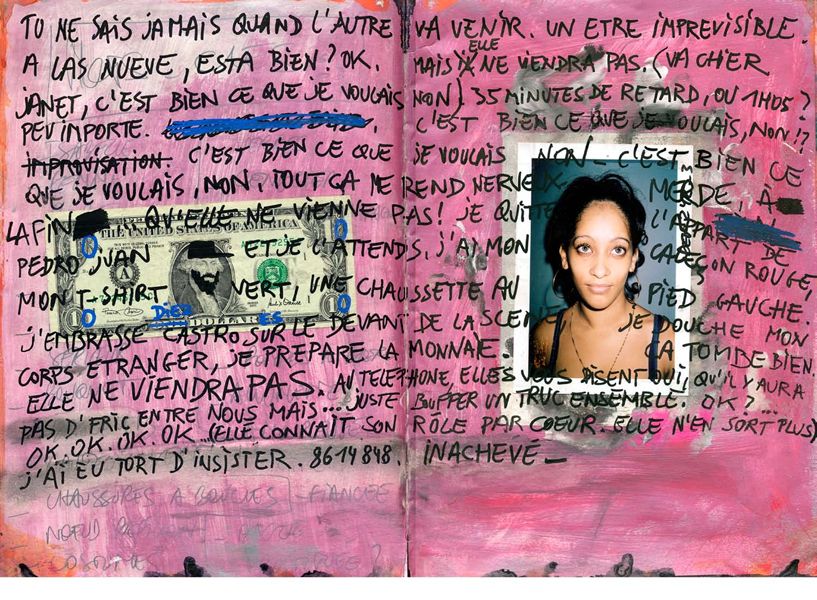 TU NE SAIS JAMAIS QUAND L'AUTRE VA VENIR. UN ETRE IMPREVISIBLE.
A LAS NUEVE, ESTA BIEN? OK. MAIS ELLE NE VIENDRA PAS. (VA CHIER
JANET, C'EST BIEN CE QUE JE VOULAIS NON) 35 MINUTES DE RETARD, OU 1H05?
PEU IMPORTE. C'EST BIEN CE QUE JE VOULAIS, NON!?
IMPROVISATION. C'EST BIEN CE QUE JE VOULAIS NON_ C'EST BIEN CE
QUE JE VOULAIS, NON, TOUT ÇA ME REND NERVEUX. MERDE, À
LA FIN QU'ELLE NE VIENNE PAS! JE QUITTE L'APPART DE
THE UNITED STATES OF AMERICA
PEDRO JUAN ET JE L'ATTENDS, J'AI MON CALEÇON ROUGE,
MON T-SHIRT VERT, UNE CHAUSSETTE AU PIED GAUCHE.
DIEU ES
DOLLAR
J'EMBRASSE CASTRO SUR LE DEVANT DE LA SCENE JE DOUCHE MON
CORPS ETRANGER, JE PREPARE LA MONNAIE. ÇA TOMBE BIEN.
ELLE NE VIENDRA PAS. AU TELEPHONE, ELLES VOUS DISENT OUI, QU'IL Y AURA
PAS D'FRIC ENTRE NOUS MAIS... JUSTE BUFFER UN TRUC ENSEMBLE. OK?...
OK.OK.OK.OK...(ELLE CONNAIT SON RÔLE PAR COEUR. ELLE N'EN SORT PLUS)
J'AI EU TORT D'INSISTER. 8614848. INACHEVÉ_
CHAUSSURES A BOUCLES - FIANCEE
NOEUD